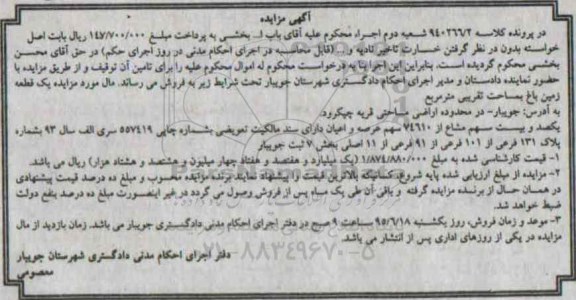 آگهی مزایده
در پرونده کلاسه ۹۴۰۲۶۶/۲ شعبه دوم اجراء محکوم علیه آقای باب ا... بخشی به پرداخت مبلغ ۱۴۷/۷۰۰/۰۰۰ ریال بابت اصل
خواسته بدون در نظر گرفتن خسارت تاخیر تادیه و... (قابل محاسبه در اجرای احکام مدنی در روز اجرای حکم) در حق آقای محسن
بخشی محکوم گردیده است. بنابراین این اجرا بنا به درخواست محکوم له اموال محکوم علیه را برای تامین آن توقیف و از طریق مزایده با
حضور نماینده دادستان و مدیر اجرای احکام دادگستری شهرستان جویبار تحت شرایط زیر به فروش می رساند. مال مورد مزایده یک قطعه
زمین باغ بمساحت تقریبی مترمربع
به آدرس: جویبار- در محدوده اراضی مساحتی قریه چپکرود.
یکصد و بیست سهم مشاع از ۷۴۶۱۰ سهم عرصه و اعیان دارای سند مالکیت تعویضی بشماره چاپی ۵۵۷۴۱۹ سری الف سال ۹۳ بشماره
پلاک ۱۳۱ فرعی از ۱۰۱ فرعی از ۹۱ فرعی از ۱۱ اصلی بخش ۷ ثبت جویبار
۱- قیمت کارشناسی شده به مبلغ ۱/۸۷۴/۸۸۰/۰۰۰ (یک میلیارد و هفتصد و هفتاد چهار میلیون و هشتصد و هشتاد هزار) ریال می باشد.
۲- مزایده از مبلغ ارزیابی شده پایه شروع، کسانیکه بالاترین قیمت را پیشنهاد نمایند برنده مزایده محسوب و مبلغ ده درصد قیمت پیشنهادی
در همان حسال از برنسده مزایده گرفته و باقی آن طی یک ماه پس از فروش وصول می گردد در غیر اینصورت مبلغ ده درصد بنفع دولت
ضبط خواهد شد.
۳- موعد و زمان فروش، روز یکشنبه ۹۵/۶/۱۸ ساعت ۹ صبح در دفتر اجرای احکام مدنی دادگستری جویبار می باشد. زمان بازدید از مال
مزایده در یکی از روزهای اداری پس از انتشار می باشد.
۰۲۱-۸۸۳۴۹۶۷۰-۵
دفتر اجرای احکام مدنی دادگستری شهرستان جویبار
معصومی